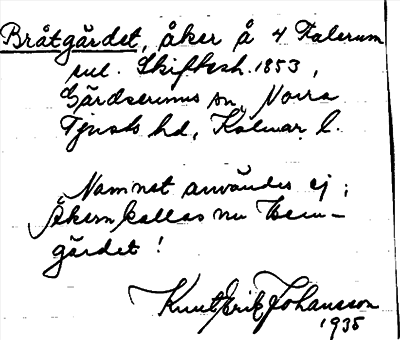 Bråtgärdet, åker å 4 Falerum
enl. Skiftesh. 1853,
Gärdserums sn, Norra
Tjusts hd, Kalmar l.
Namnet användes ej;
Åkern kallas nu Hem-
gärdet!
Knut Erik Johansson
1935